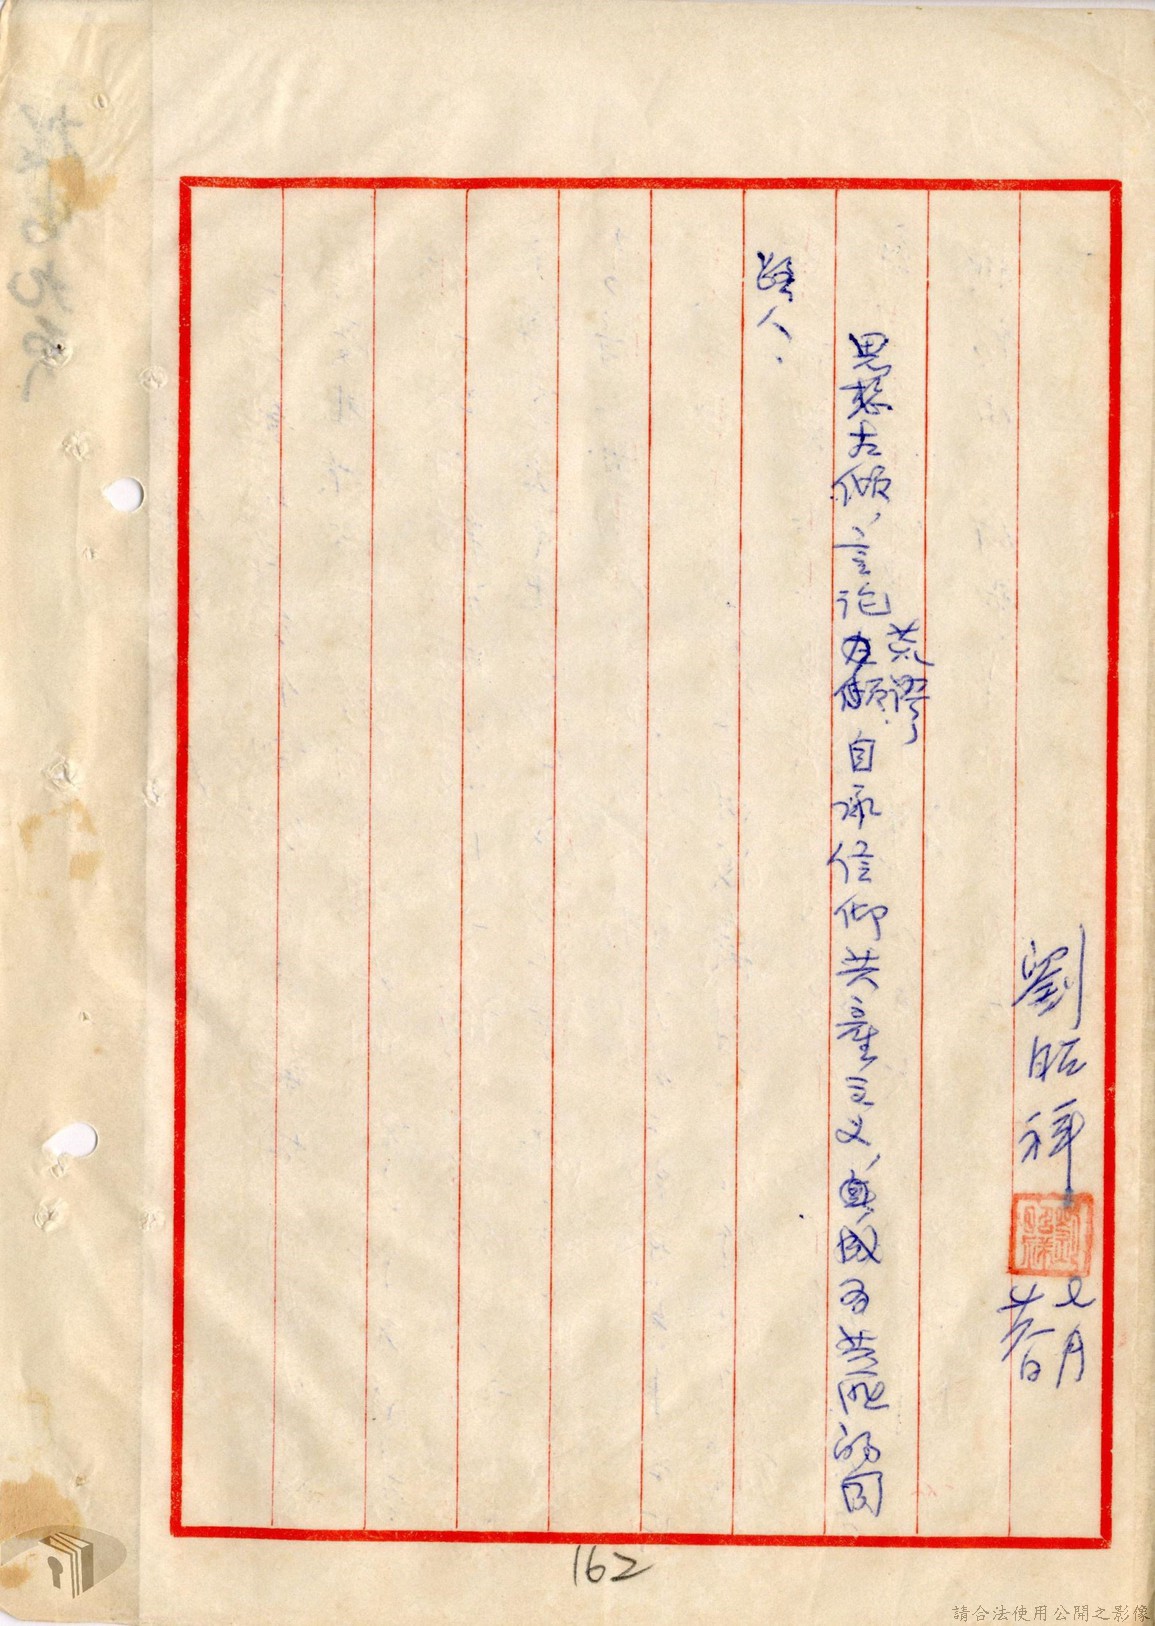 劉昭祥
七月
廿八日
思想左傾、言論荒謬、自承信仰共產主义、成为共匪的同
路人.
162
請合法使用公開之影像